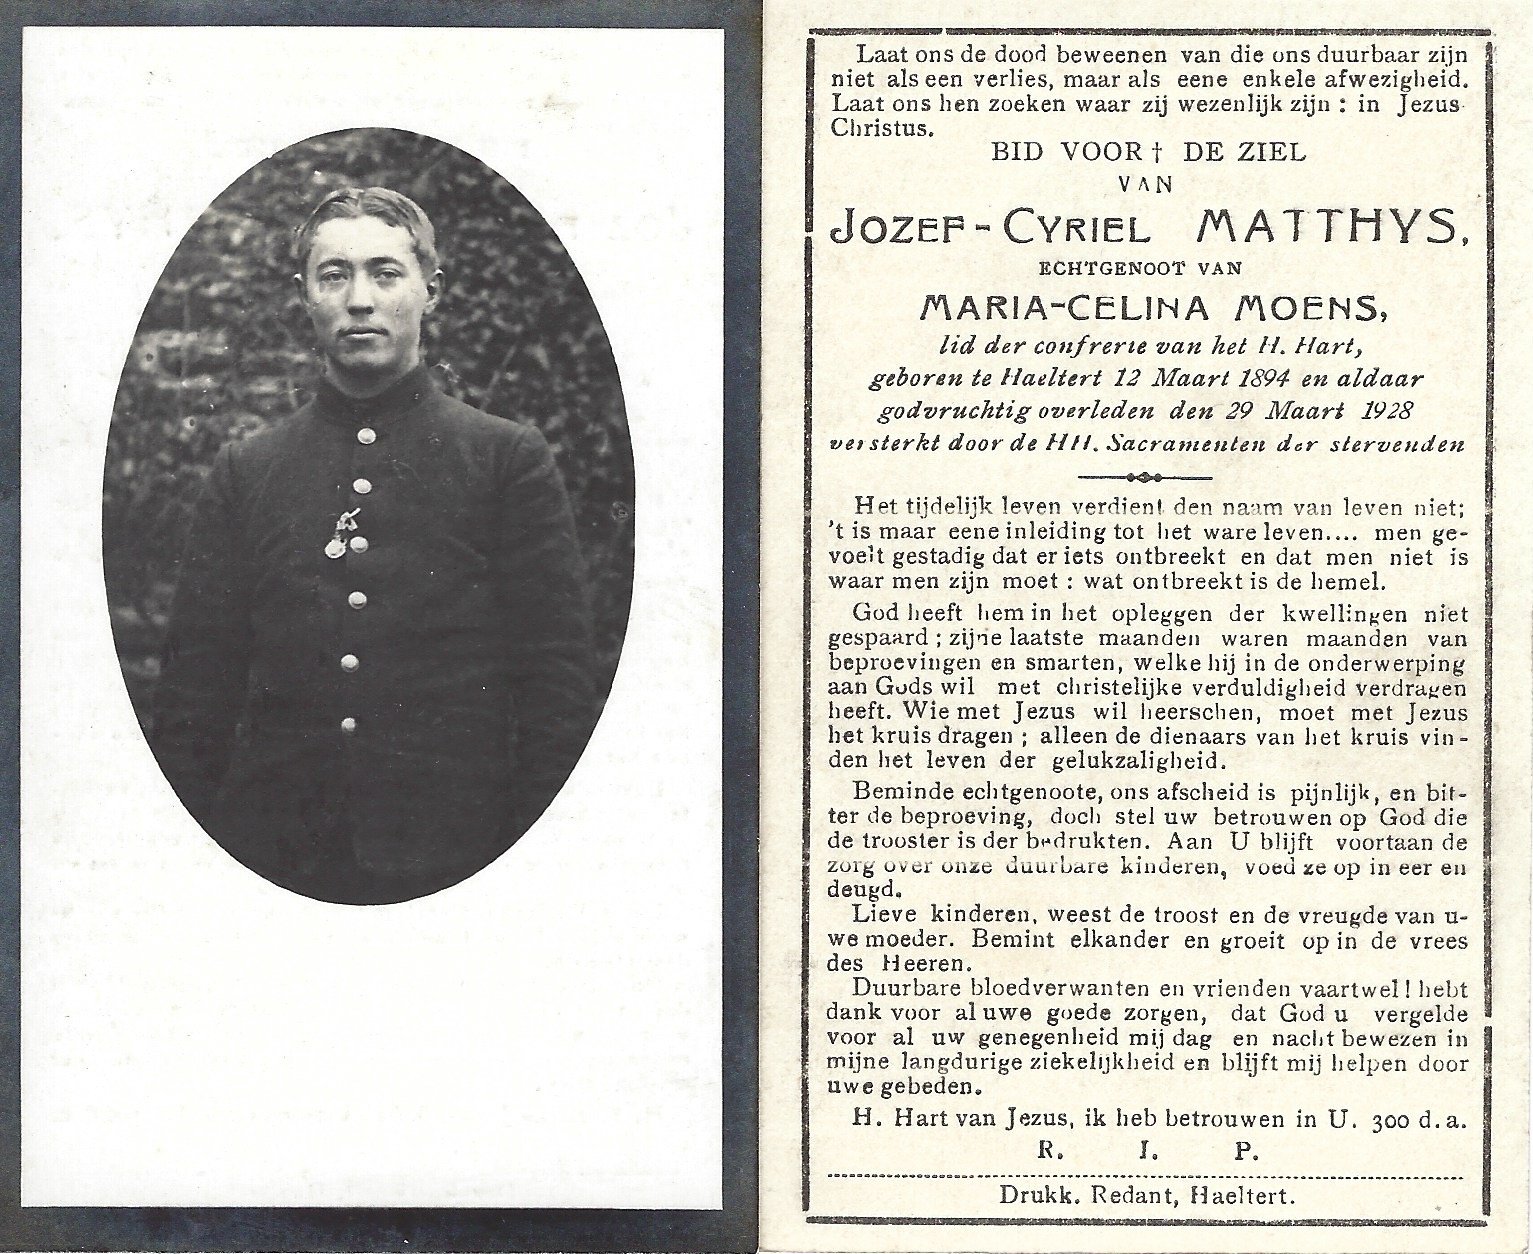 Laat ons de dood beweenen van die ons duurbaar zijn
niet als een verlies, maar als eene enkele afwezigheid.
Laat ons hen zoeken waar zij wezenlijk zijn : in Jezus
Christus.
BID VOOR † DE ZIEL
VAN
JOZEF-CYRIEL MATTHYS,
ECHTGENOOT VAN
MARIA-CELINA MOENS,
lid der confrerie van het H. Hart,
geboren te Haeltert 12 Maart 1894 en aldaar
godvruchtig overleden den 29 Maart 1928
versterkt door de HH. Sacramenten der stervenden
Het tijdelijk leven verdient den naam van leven niet;
't is maar eene inleiding tot het ware leven.... men ge-
voelt gestadig dat er iets ontbreekt en dat men niet is
waar men zijn moet : wat ontbreekt is de hemel.
God heeft hem in het opleggen der kwellingen niet
gespaard ; zijne laatste maanden waren maanden van
beproevingen en smarten, welke hij in de onderwerping
aan Gods wil met christelijke verduldigheid verdragen
heeft. Wie met Jezus wil heerschen, moet met Jezus
het kruis dragen ; alleen de dienaars van het kruis vin-
den het leven der gelukzaligheid.
Beminde echtgenoote, ons afscheid is pijnlijk, en bit-
ter de beproeving, doch stel uw betrouwen op God die
de trooster is der bedrukten. Aan U blijft voortaan de
zorg over onze duurbare kinderen, voed ze op in eer en
deugd.
Lieve kinderen, weest de troost en de vreugde van u-
we moeder. Bemint elkander en groeit op in de vrees
des Heeren.
Duurbare bloedverwanten en vrienden vaartwel! hebt
dank voor al uwe goede zorgen, dat God u vergelde
voor al uw genegenheid mij dag en nacht bewezen in
mijne langdurige ziekelijkheid en blijft mij helpen door
uwe gebeden.
H. Hart van Jezus, ik heb betrouwen in U. 300 d.a.
R. I. P.
Drukk. Redant, Haeltert.